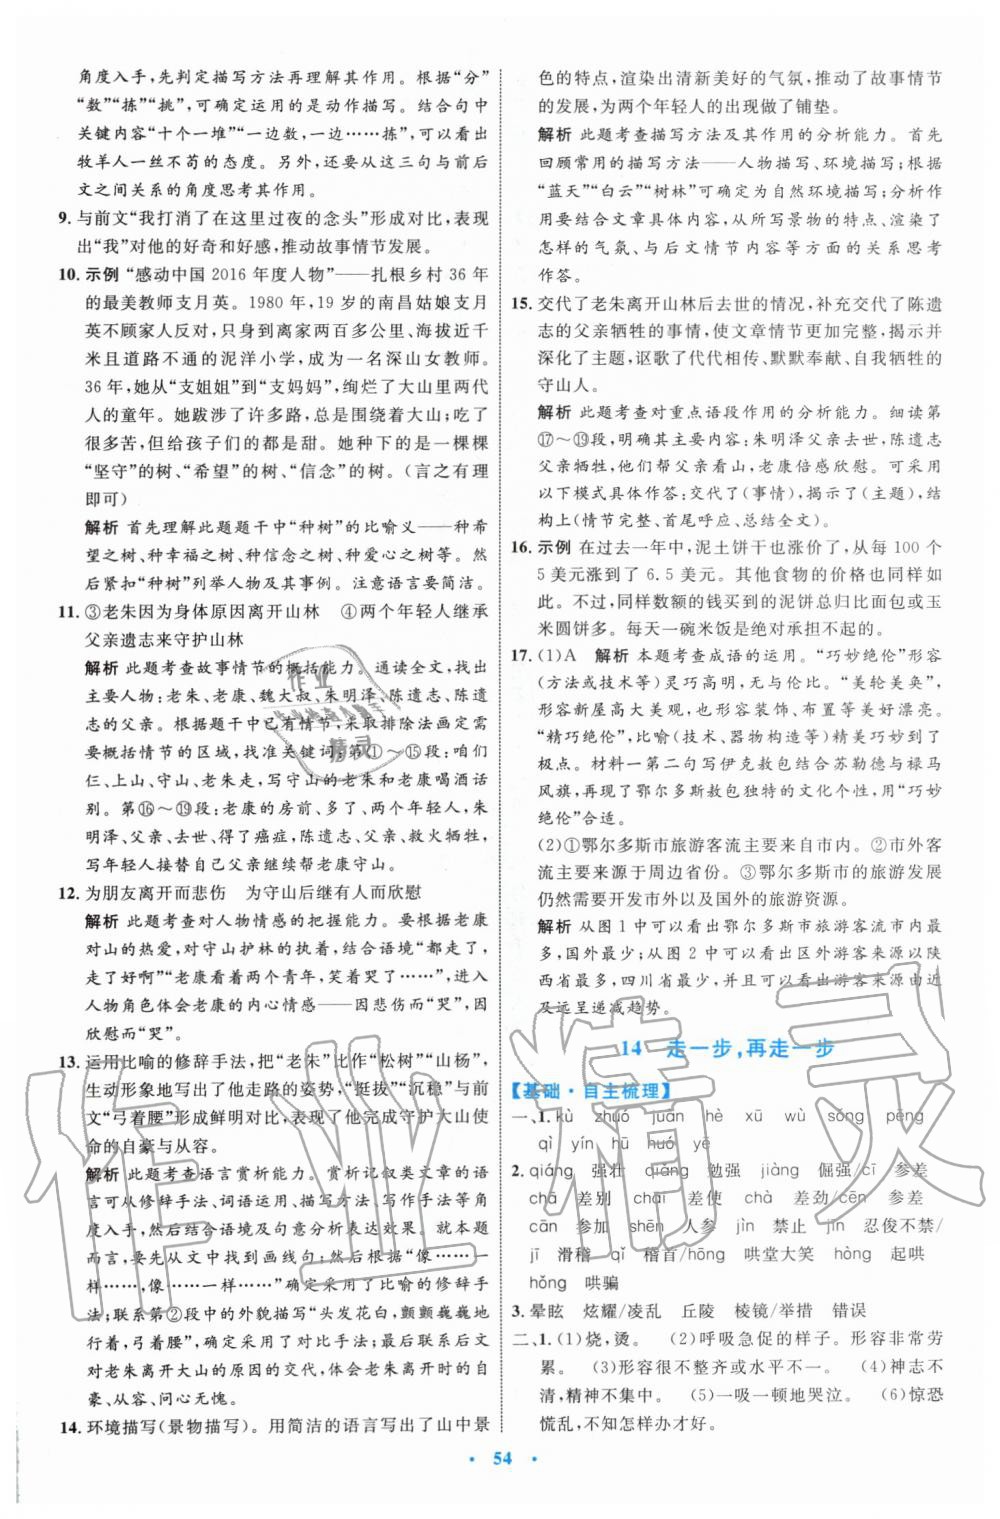 角度入手,先判定描写方法再理解其作用。根据“分”
“数”“拣”“挑”,可确定运用的是动作描写。结合句中
关键内容“十个一堆”“一边数,一边……拣”,可看出
牧羊人一丝不苟的态度。另外,还要从这三句与前后
文之间关系的角度思考其作用。
9. 与前文“我打消了在这里过夜的念头”形成对比,表现
出“我”对他的好奇和好感,推动故事情节发展。
10. 示例 “感动中国 2016 年度人物”——扎根乡村 36 年
的最美教师支月英。1980 年,19 岁的南昌姑娘支月
英不顾家人反对,只身到离家两百多公里、海拔近千
米且道路不通的泥洋小学,成为一名深山女教师。
36 年,她从“支姐姐”到“支妈妈”,绚烂了大山里两代
人的童年。她跋涉了许多路,总是围绕着大山;吃了
很多苦,但给孩子们的都是甜。她种下的是一棵棵
“坚守”的树、“希望”的树、“信念”的树。(言之有理
即可)
解析 首先理解此题题干中“种树”的比喻义——种希
望之树、种幸福之树、种信念之树、种爱心之树等。然
后紧扣“种树”列举人物及其事例。注意语言要简洁。
11. ③老朱因为身体原因离开山林 ④两个年轻人继承
父亲遗志来守护山林
解析 此题考查故事情节的概括能力。通读全文,找出
主要人物:老朱、老康、魏大叔、朱明泽、陈遗志、陈遗
志的父亲。根据题干中已有情节,采取排除法画定需
要概括情节的区域,找准关键词:第①～⑮段:咱们
仨、上山、守山、老朱走,写守山的老朱和老康喝酒话
别。第⑯～⑲段:老康的房前、多了、两个年轻人、朱
明泽、父亲、去世、得了癌症,陈遗志、父亲、救火牺牲,
写年轻人接替自己父亲继续帮老康守山。
12. 为朋友离开而悲伤 为守山后继有人而欣慰
解析 此题考查对人物情感的把握能力。要根据老康
对山的热爱,对守山护林的执着,结合语境“都走了,
走了好啊”“老康看着两个青年,笑着哭了……”,进入
人物角色体会老康的内心情感——因悲伤而“哭”,因
欣慰而“哭”。
13. 运用比喻的修辞手法,把“老朱”比作“松树”“山杨”,
生动形象地写出了他走路的姿势,“挺拔”“沉稳”与前
文“弓着腰”形成鲜明对比,表现了他完成守护大山使
命的自豪与从容。
解析 此题考查语言赏析能力。赏析记叙类文章的语
言可从修辞手法、词语运用、描写手法、写作手法等角
度入手,然后结合语境及句意分析表达效果。就本题
而言,要先从文中找到画线句;然后根据“像……一
样……,像……一样……”确定采用了比喻的修辞手
法;联系第②段中的外貌描写“头发花白,颤颤巍巍地
行,弓着腰”,确定采用了对比手法;最后联系后文
对老朱离开大山的原因的交代,体会此时老朱的自
豪、从容、问心无愧。
14. 环境描写(景物描写)。用简洁的语言写出了山中景
色的特点,渲染出清新美好的气氛,推动了故事情节
的发展,为两个年轻人的出现做了铺垫。
解析 此题考查描写方法及其作用的分析能力。首先
回顾常用的描写方法——人物描写、环境描写;根据
“蓝天”“白云”“树林”可确定为自然环境描写;分析作
用要结合文章具体内容,从所写景物的特点、渲染了
怎样的气氛、与后文情节内容等方面的关系思考
作答。
15. 交代了老朱离开山林后去世的情况,补充交代了陈遗
志的父亲牺牲的事情,使文章情节更加完整,揭示并
深化了主题,讴歌了代代相传、默默奉献、自我牺牲的
守山人。
解析 此题考查对重点语段作用的分析能力。细读第
⑰～⑲段,明确其主要内容:朱明泽父亲去世,陈遗志
父亲牺牲,他们帮父亲看山,老康倍感欣慰。可采用
以下模式具体作答:交代了(事情),揭示了(主题),结
构上(情节完整、首尾呼应、总结全文)。
16. 示例 在过去一年中,泥土饼干也涨价了,从每 100 个
5 美元涨到了 6.5 美元。其他食物的价格也同样如
此。不过,同样数额的钱买到的泥饼总归比面包或玉
米圆饼多。每天一碗米饭是绝对承担不起的。
17. (1)A 解析 本题考查成语的运用。“巧妙绝伦”形容
(方法或技术等)灵巧高明,无与伦比。“美轮美奂”,
形容新屋高大美观,也形容装饰、布置等美好漂亮。
“精巧绝伦”,比喻(技术、器物构造等)巧妙的程度到了
极点。材料一第二句写伊克敖包进行苏勒德与禄马
风旗,再现了鄂尔多斯敖包独特的文化个性,用“巧妙
绝伦”合适。
(2)①鄂尔多斯市旅游客流主要来自市内。②市外客
流主要来源于陕西及周边省份。③鄂尔多斯市的旅游发展
仍然需要开发市外以及国外的旅游资源。
解析 从图 1 中可以看出鄂尔多斯市旅游客流市内最
多,国外最少;从图 2 中可以看出区外游客来源以陕
西省最多,四川省最少,并且可以看出游客来源由近
及远呈递减趋势。
14 走一步,再走一步
【基础·自主梳理】
一、1. kù zhuó juān hè xū wù sǒng pēng
qì yín hū huó yē
2. qiáng 强壮 qiǎng 勉强 jiàng 倔强/cī 参差
chā 差别 chāi 差使 chà 差劲/cēn 参差
cān 参加 shēn 人参 jìn 禁止 jīn 忍俊不禁/
jī 滑稽 qǐ 稽首/hōng 哄堂大笑 hòng 起哄
hǒng 哄骗
3. 晕眩 炫耀/凌乱 丘陵 棱镜/举措 错误
二、1.(1)烧,烫。 (2)呼吸急促的样子。形容非常劳
累。 (3)形容很不整齐或水平不一。 (4)神志不
清,精神不集中。 (5)一吸一顿地哭泣。 (6)惊恐
慌乱,不知怎样办才好。
54
作业精灵